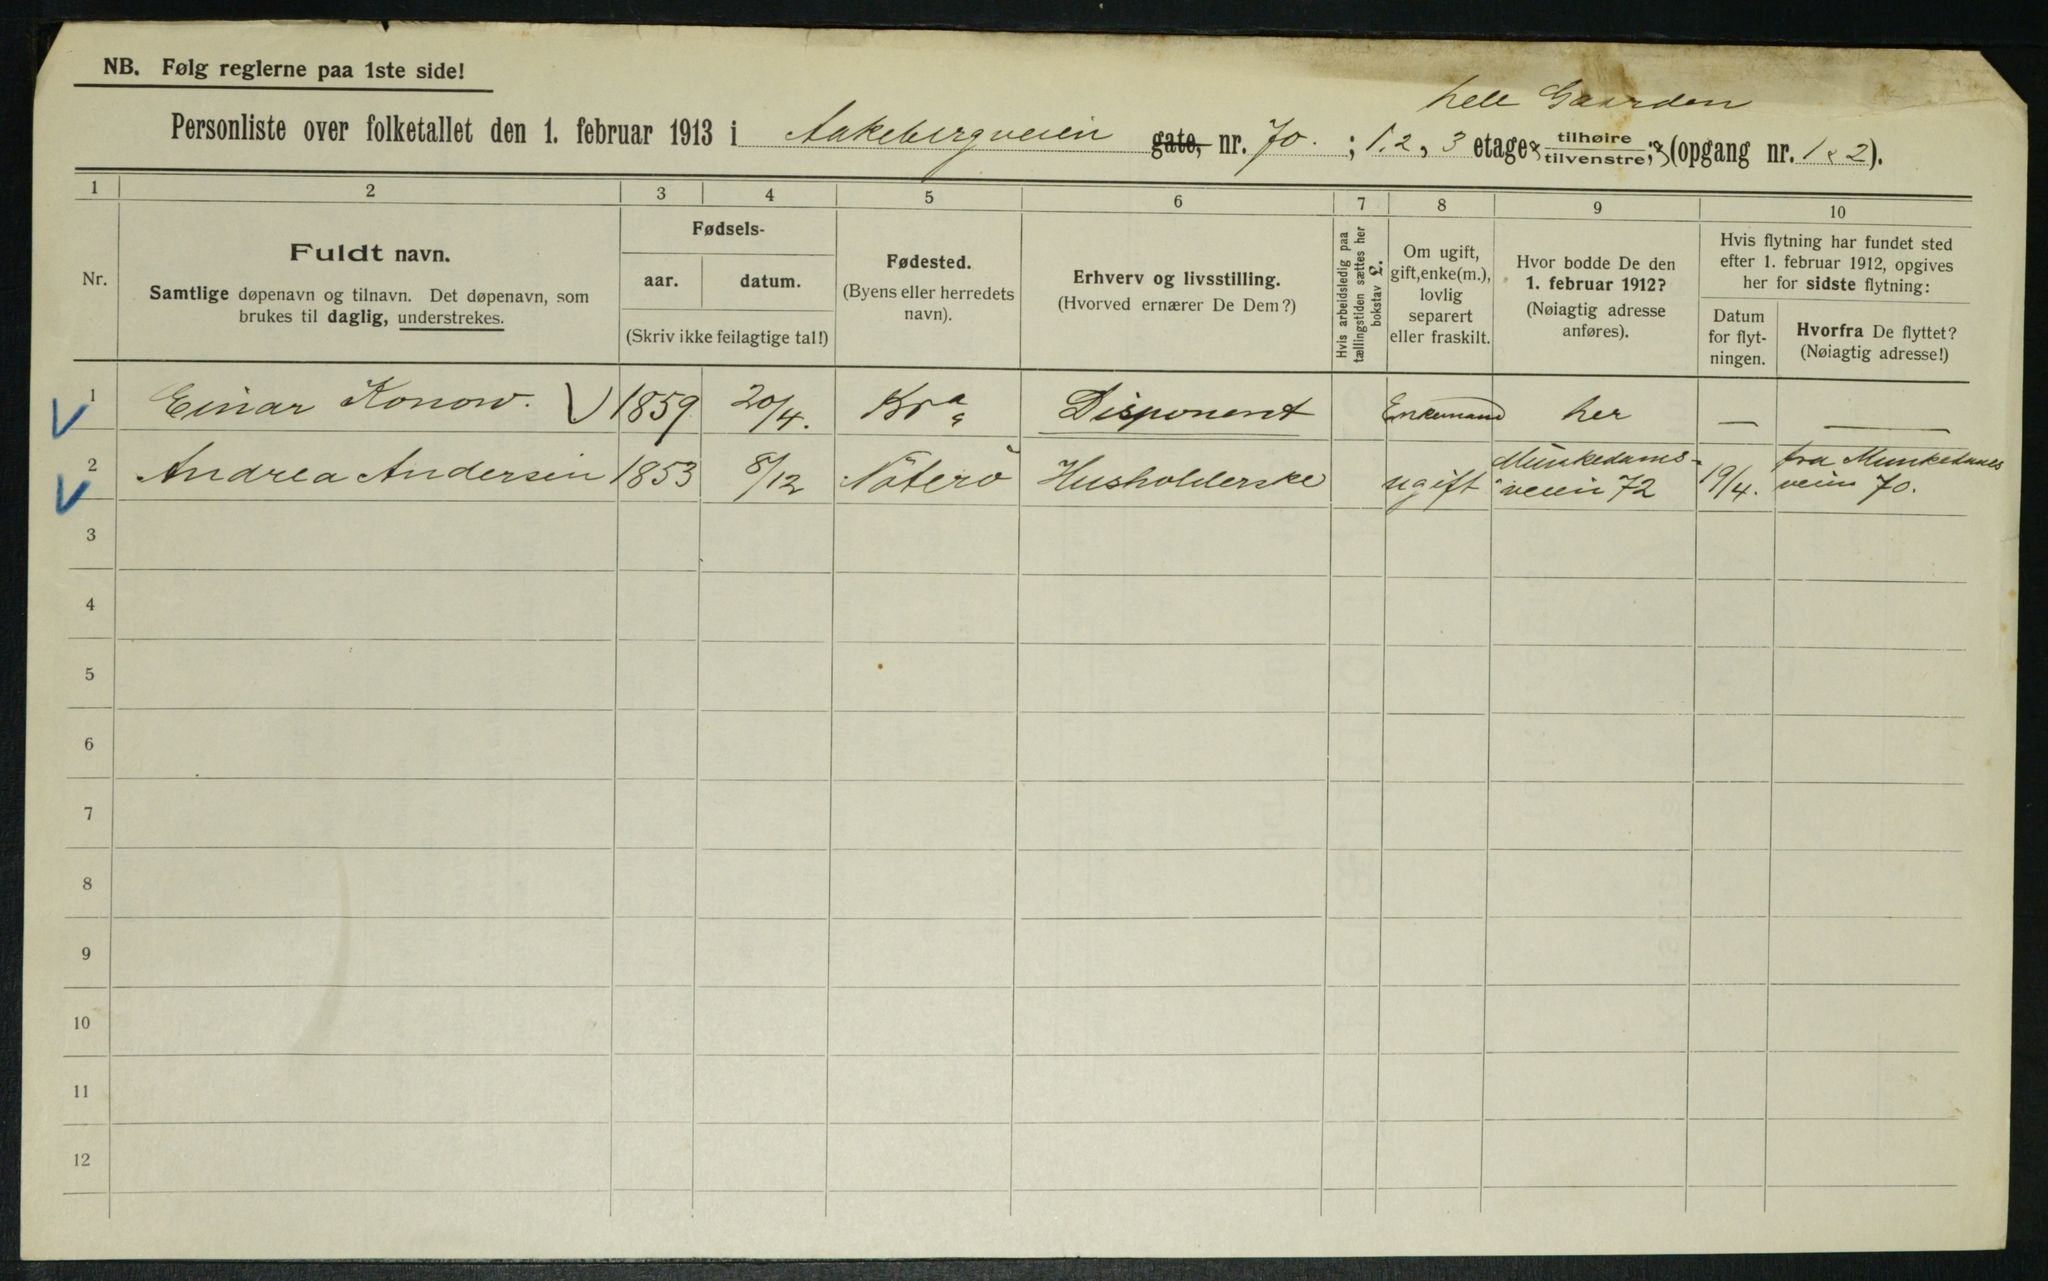 NB. Følg reglerne paa 1ste side!
hele Gaarden
Personliste over folketallet den 1. februar 1913 i Aakebergveien gate, nr. 70. ; 1, 2, 3 etage, tilhøire tilvenstre; (opgang nr. 1 & 2).
1 2 3 4 5 6 7 8 9 10
Nr.
Fuldt navn.
Samtlige døpenavn og tilnavn. Det døpenavn, som
brukes til daglig, understrekes.
Fødsels-
aar. datum.
(Skriv ikke feilagtige tal!)
Fødested.
(Byens eller herredets
navn).
Erhverv og livsstilling.
(Hvorved ernærer De Dem?)
Hvis arbeidsledig paa
tællingstiden sættes her
bokstav L.
Om ugift,
gift, enke(m.),
lovlig
separert
eller fraskilt.
Hvor bodde De den
1. februar 1912?
(Nøiagtig adresse
anføres).
Hvis flytning har fundet sted
efter 1. februar 1912, opgives
her for sidste flytning:
Datum
for flyt-
ningen.
Hvorfra De flyttet?
(Nøiagtig adresse!)
1 Einar Konow. 1859 20/4. Kra Disponent Enkemand her — —
2 Andrea Andersen 1853 8/12 Nøterø Husholderske ugift Munkedams-
veien 72 19/4. fra Munkedams
veien 70.
3
4
5
6
7
8
9
10
11
12